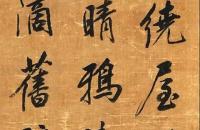 繞屋
晴鴉
滴舊